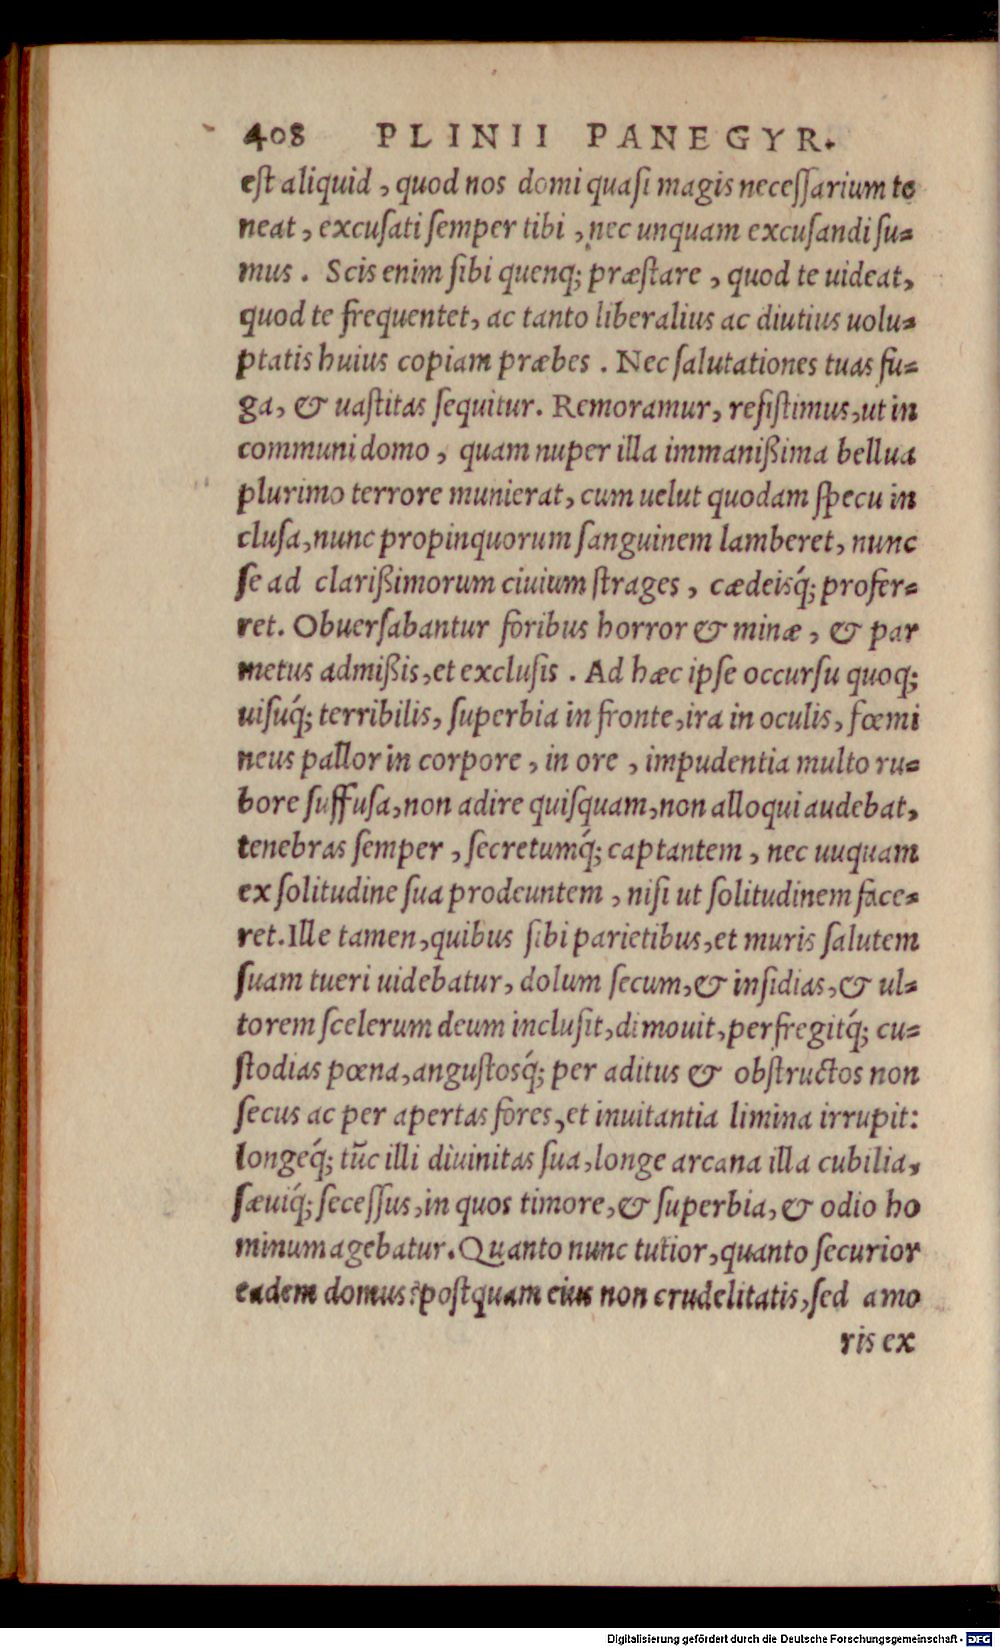 408 PLINII PANEGYR.
est aliquid, quod nos domi quasi magis necessarium te
neat, excusati semper tibi, nec unquam excusandi su=
mus. Scis enim sibi quenq; præstare, quod te uideat,
quod te frequentet, ac tanto liberalius ac diutius uolu=
ptatis huius copiam præbes. Nec salutationes tuas fu=
ga, & uastitas sequitur. Remoramur, resistimus, ut in
communi domo, quam nuper illa immanißima bellua
plurimo terrore munierat, cum uelut quodam specu in
clusa, nunc propinquorum sanguinem lamberet, nunc
se ad clarißimorum ciuium strages, cædeisq́; profer=
ret. Obuersabantur foribus horror & minæ, & par
metus admißis, et exclusis. Ad hæc ipse occursu quoq;
uisuq́; terribilis, superbia in fronte, ira in oculis, fœmi
neus pallor in corpore, in ore, impudentia multo ru=
bore suffusa, non adire quisquam, non alloqui audebat,
tenebras semper, secretumq́; captantem, nec uuquam
ex solitudine sua prodeuntem, nisi ut solitudinem face=
ret. Ille tamen, quibus sibi parietibus, et muris salutem
suam tueri uidebatur, dolum secum, & insidias, & ul=
torem scelerum deum inclusit, dimouit, perfregitq́; cu=
stodias pœna, angustosq́; per aditus & obstructos non
secus ac per apertas fores, et inuitantia limina irrupit:
longeq́; tũc illi diuinitas sua, longe arcana illa cubilia,
sæuiq́; secessus, in quos timore, & superbia, & odio ho
minum agebatur. Quanto nunc tutior, quanto securior
eadem domus? postquam eius non crudelitatis, sed amo
ris ex
Digitalisierung gefördert durch die Deutsche Forschungsgemeinschaft - DFG